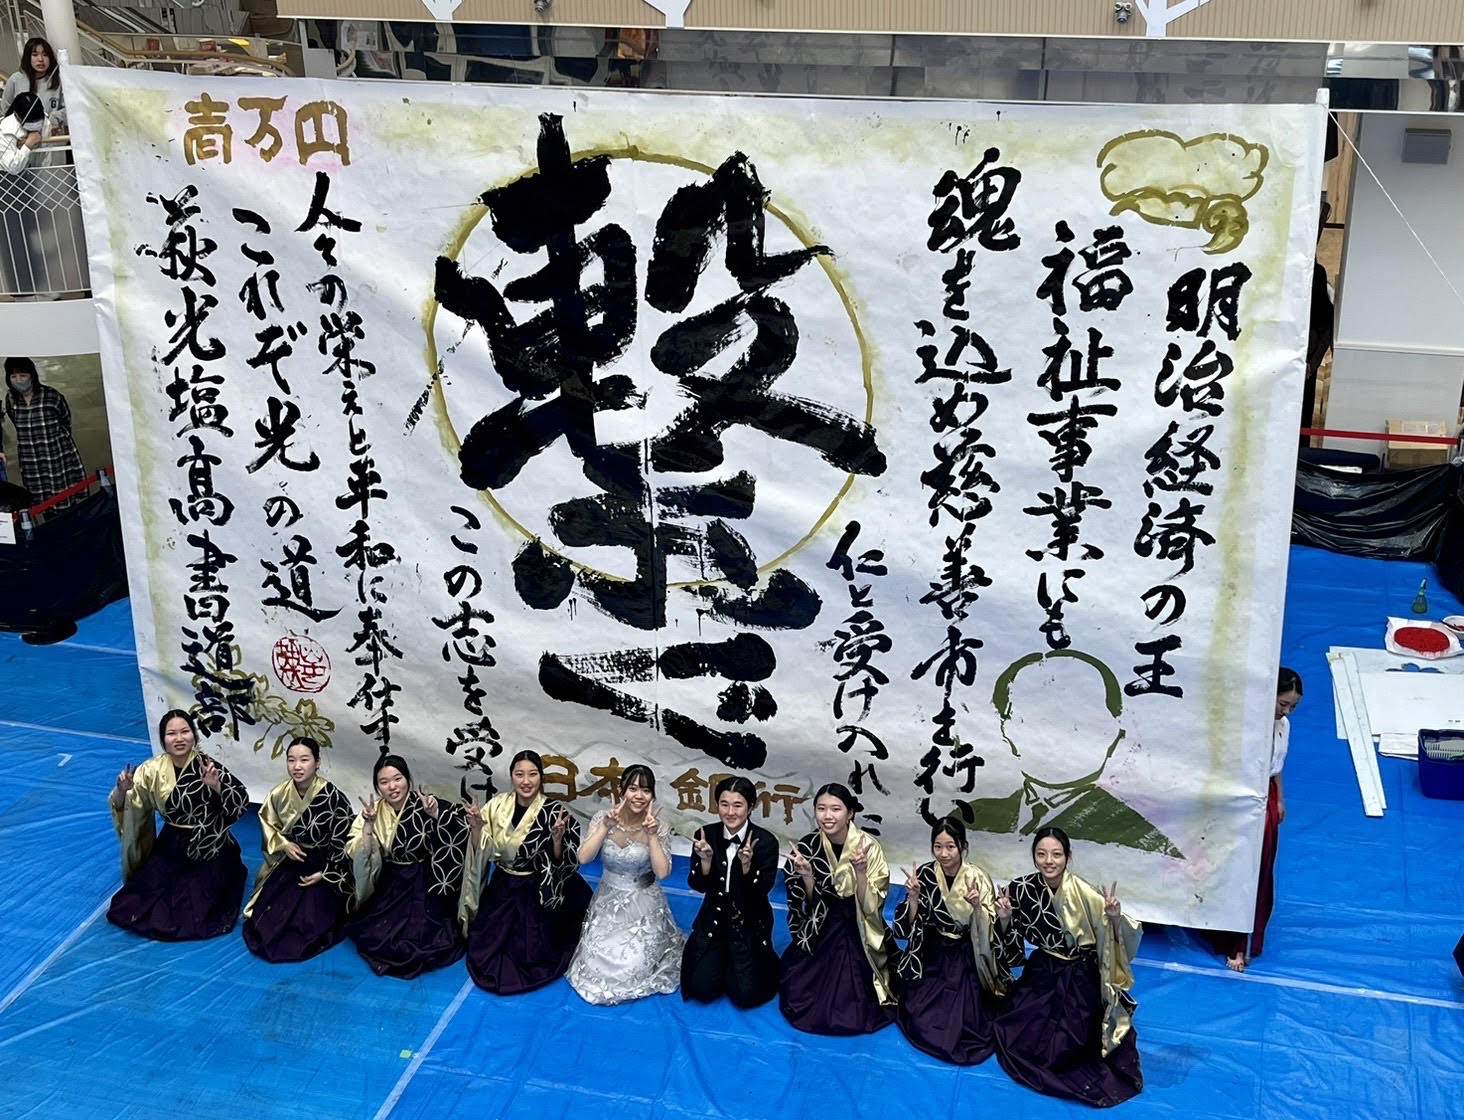 明治経済の王
福祉事業にも
魂を込め慈善市を行い
仁と受け入れた
繋
この志を受け
人々の栄えと平和に奉仕する
これぞ光の道
萩光塩高書道部
壱万円
日本銀行